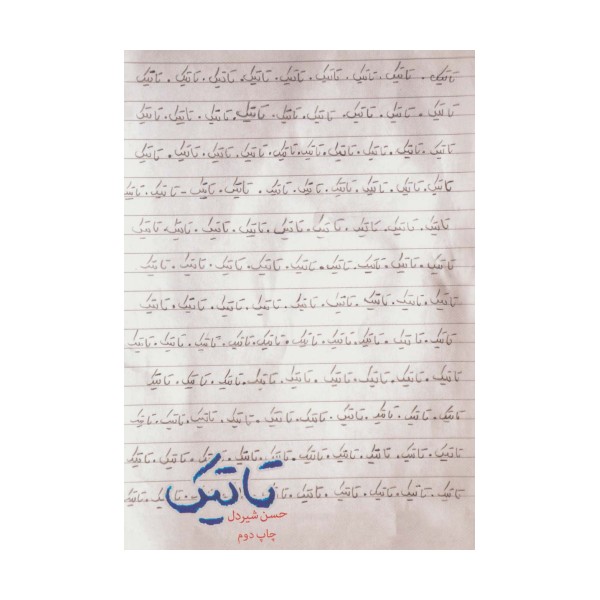 تاتیک . تاتیک . تاتیک . تاتیک . تاتیک . تاتیک . تاتیک . تاتیک . تاتیک
تاتیک . تاتیک . تاتیک . تاتیک . تاتیک . تاتیک . تاتیک . تاتیک . تاتیک
تاتیک . تاتیک . تاتیک . تاتیک . تاتیک . تاتیک . تاتیک . تاتیک . تاتیک . تاتیک
تاتیک . تاتیک . تاتیک . تاتیک . تاتیک . تاتیک . تاتیک . تاتیک . تاتیک . تاتیک
تاتیک . تاتیک . تاتیک . تاتیک . تاتیک . تاتیک . تاتیک . تاتیک . تاتیک
تاتیک . تاتیک . تاتیک . تاتیک . تاتیک . تاتیک . تاتیک . تاتیک . تاتیک
تاتیک . تاتیک . تاتیک . تاتیک . تاتیک . تاتیک . تاتیک . تاتیک . تاتیک
تاتیک . تاتیک . تاتیک . تاتیک . تاتیک . تاتیک . تاتیک . تاتیک . تاتیک . تاتیک
تاتیک . تاتیک . تاتیک . تاتیک . تاتیک . تاتیک . تاتیک . تاتیک . تاتیک
تاتیک . تاتیک . تاتیک . تاتیک . تاتیک . تاتیک . تاتیک . تاتیک . تاتیک . تاتیک
تاتیک . تاتیک . تاتیک . تاتیک . تاتیک . تاتیک . تاتیک . تاتیک . تاتیک . تاتیک
تاتیک . تاتیک . تاتیک . تاتیک . تاتیک . تاتیک
تاتیک
حسن شیردل
چاپ دوم